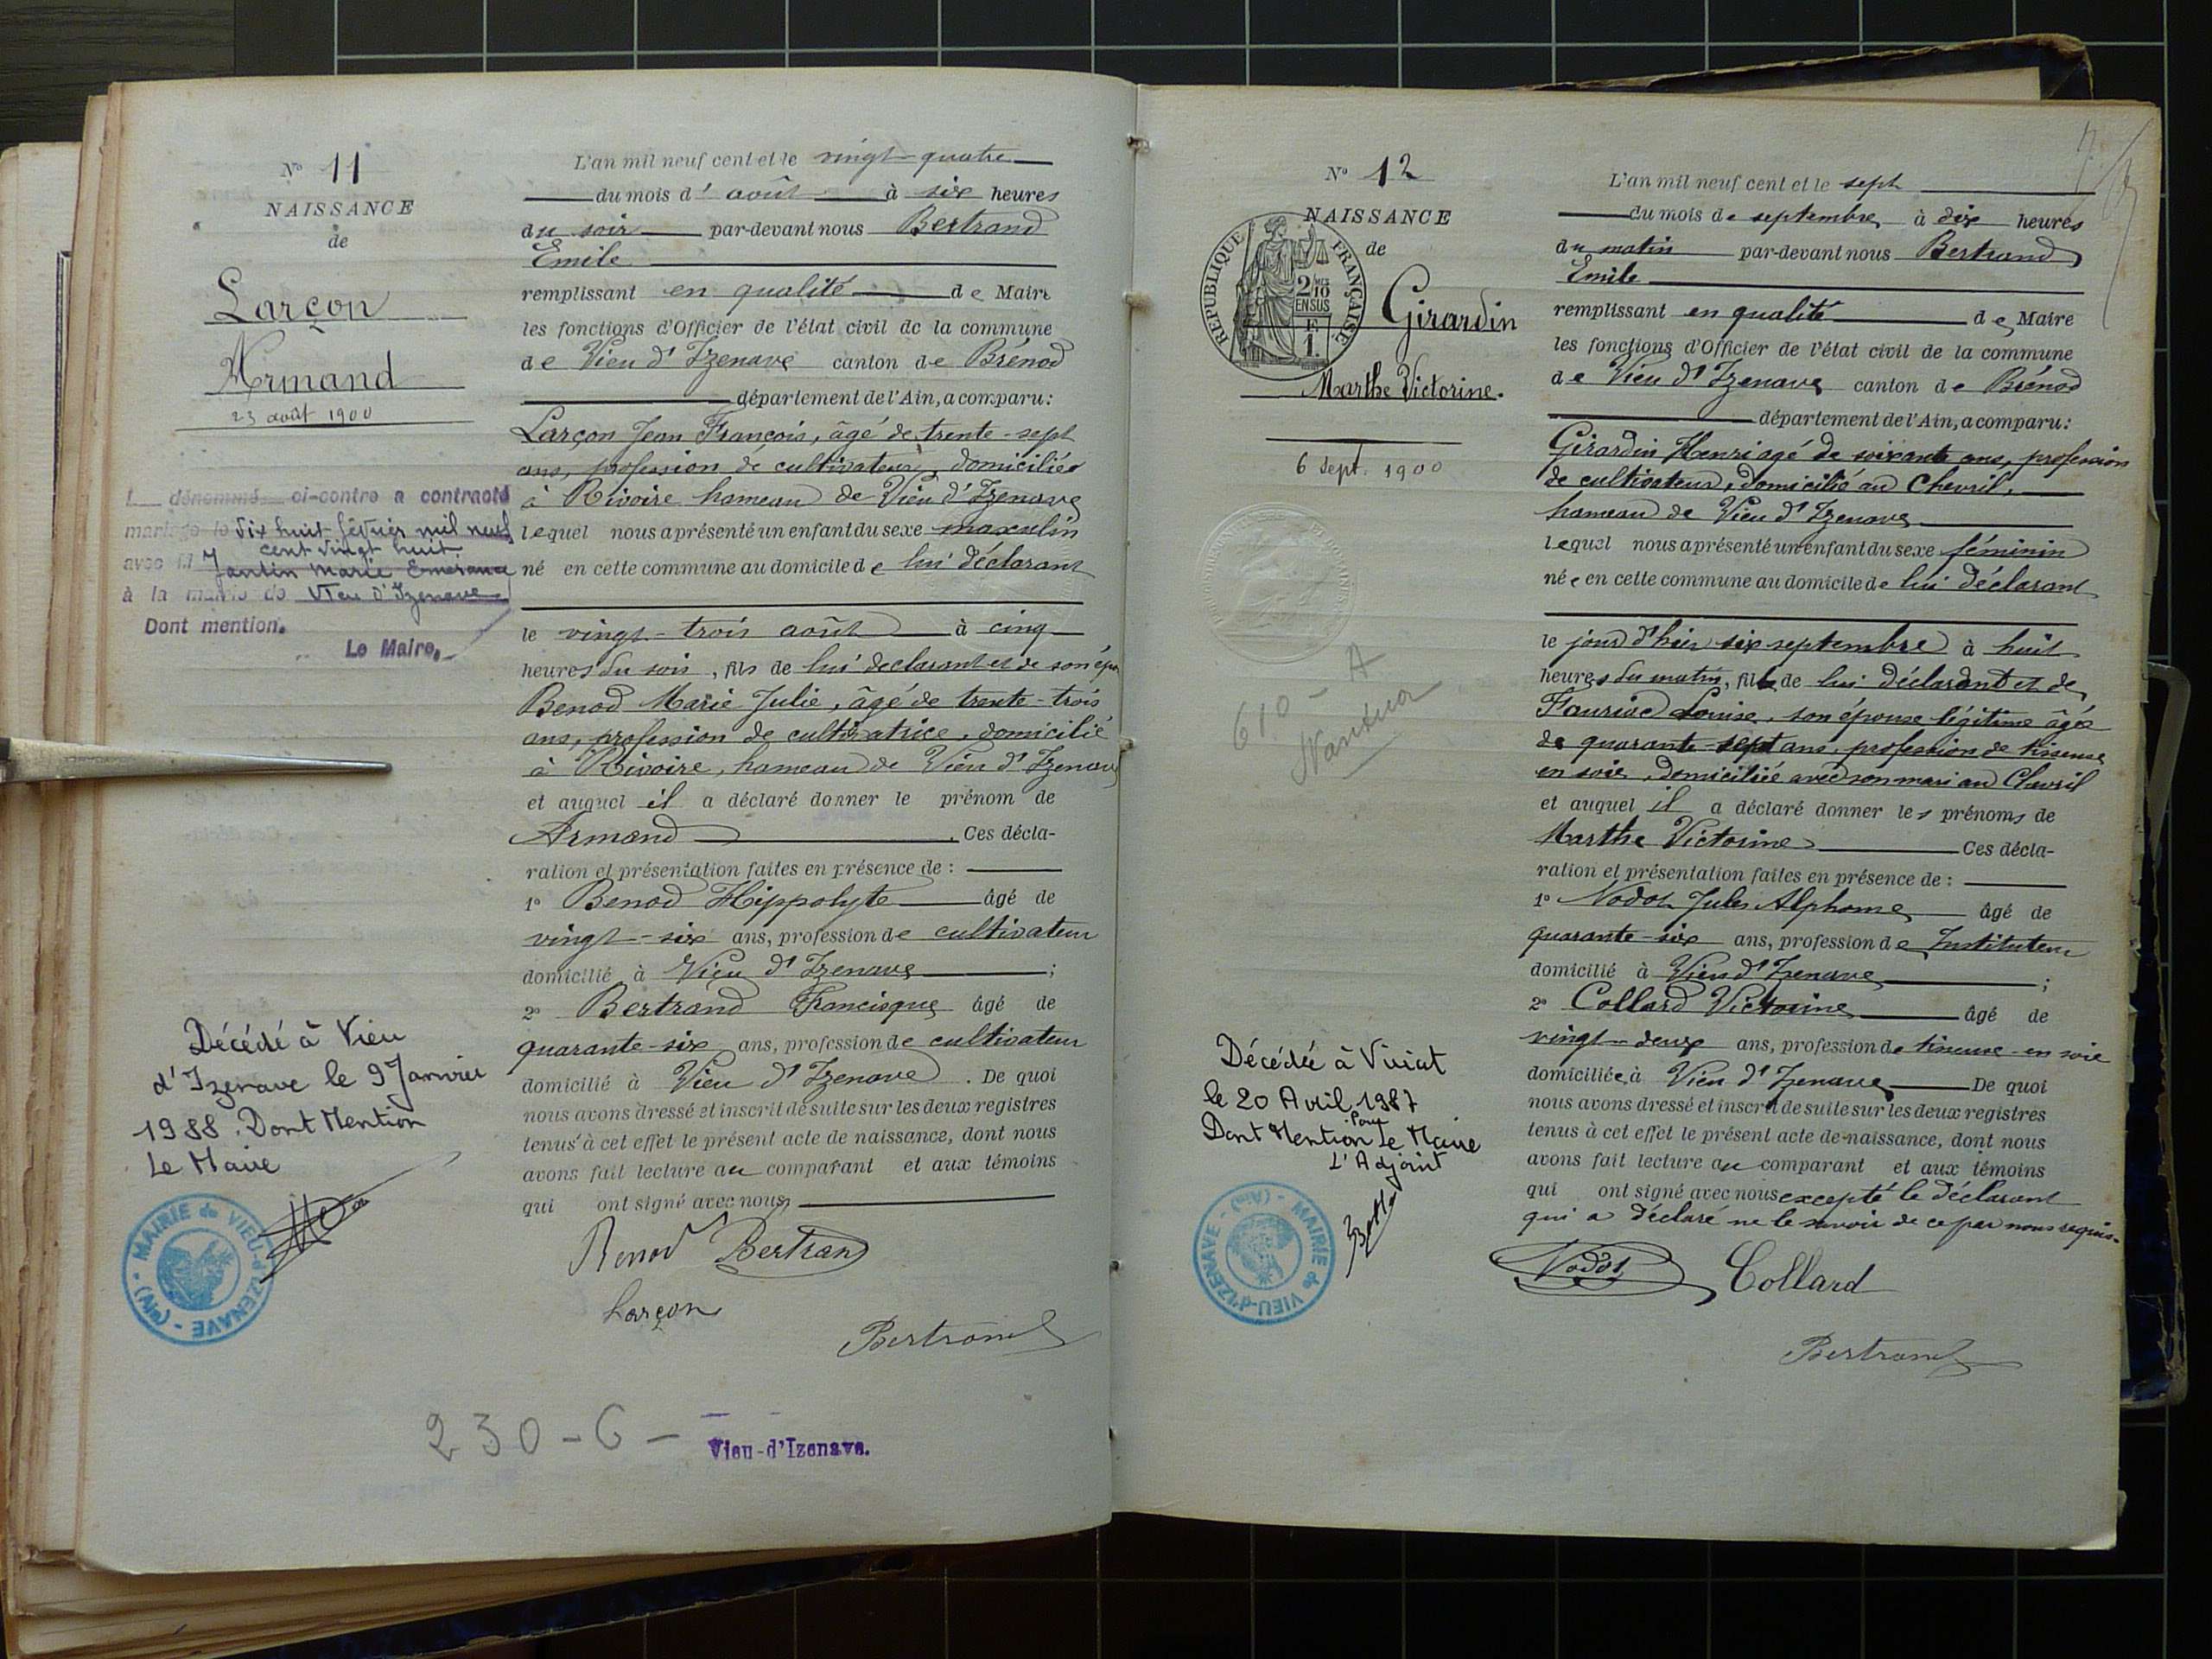 N° 11
NAISSANCE
de
Larçon
Armand
23 août 1900
L dénommé ci-contre a contracté
mariage le dix huit février mil neuf
cent vingt huit
avec M Jantin Marie Emerance
à la mairie de Vieu d'Izenave
Dont mention.
Le Maire,
Décédé à Vieu
d'Izenave le 9 Janvier
1988. Dont Mention
Le Maire
MAIRIE de VIEU-d'IZENAVE - (Ain) -
L'an mil neuf cent et le vingt-quatre
du mois d' août à six heures
du soir par-devant nous Bertrand
Emile
remplissant en qualité de Maire
les fonctions d'Officier de l'état civil de la commune
de Vieu d'Izenave canton de Brénod
département de l'Ain, a comparu:
Larçon Jean François, âgé de trente-sept
ans, profession de cultivateur, domicilié
à Rivoire hameau de Vieu d'Izenave
lequel nous a présenté un enfant du sexe masculin
né en cette commune au domicile de lui déclarant
le vingt-trois août à cinq
heures du soir, fils de lui declarant et de son
Benod Marie Julie, âgé de trente-trois
ans, profession de cultivatrice, domicilié
à Rivoire, hameau de Vieu d'Izenave
et auquel il a déclaré donner le prénom de
Armand. Ces décla-
ration et présentation faites en présence de :
1° Benod Hippolyte âgé de
vingt-six ans, profession de cultivateur
domicilié à Vieu d'Izenave ;
2° Bertrand Francisque âgé de
quarante-six ans, profession de cultivateur
domicilié à Vieu d'Izenave. De quoi
nous avons dressé et inscrit de suite sur les deux registres
tenus à cet effet le présent acte de naissance, dont nous
avons fait lecture au comparant et aux témoins
qui ont signé avec nous,
Benod Bertrand
Larçon
Bertrand
230-6-
Vieu-d'Izenave.
N° 12
NAISSANCE
de
REPUBLIQUE FRANÇAISE
2/10 EN SUS
F
1.
Girardin
Marthe Victorine.
6 Sept. 1900
610 - A
Nantua
Décédée à Viriat
le 20 Avril 1987
Dont Mention Pour Le Maire
L'Adjoint
MAIRIE de VIEU-d'IZENAVE - (Ain) -
L'an mil neuf cent et le sept
du mois de septembre à dix heures
du matin par-devant nous Bertrand
Emile
remplissant en qualité de Maire
les fonctions d'Officier de l'état civil de la commune
de Vieu d'Izenave canton de Brénod
département de l'Ain, a comparu:
Girardin Henri agé de soixante ans, profession
de cultivateur, domicilié au Chevril,
hameau de Vieu d'Izenave
lequel nous a présenté un enfant du sexe féminin
née en cette commune au domicile de lui déclarant
le jour d'hier six septembre à huit
heures du matin, fille de lui déclarant et de
Louise, son épouse légitime âgée
de quarante-sept ans, profession de tisseuse
en soie, domiciliée avec son mari au Chevril
et auquel il a déclaré donner les prénoms de
Marthe Victorine Ces décla-
ration et présentation faites en présence de :
1° Nodot Jules Alphonse âgé de
quarante-six ans, profession de Instituteur
domicilié à Vieu d'Izenave ;
2° Collard Victorine âgé de
vingt-deux ans, profession de tisseuse en soie
domiciliée à Vieu d'Izenave De quoi
nous avons dressé et inscrit de suite sur les deux registres
tenus à cet effet le présent acte de naissance, dont nous
avons fait lecture au comparant et aux témoins
qui ont signé avec nous excepté le déclarant
qui a déclaré ne le savoir de ce par nous requis.
Nodot Collard
Bertrand